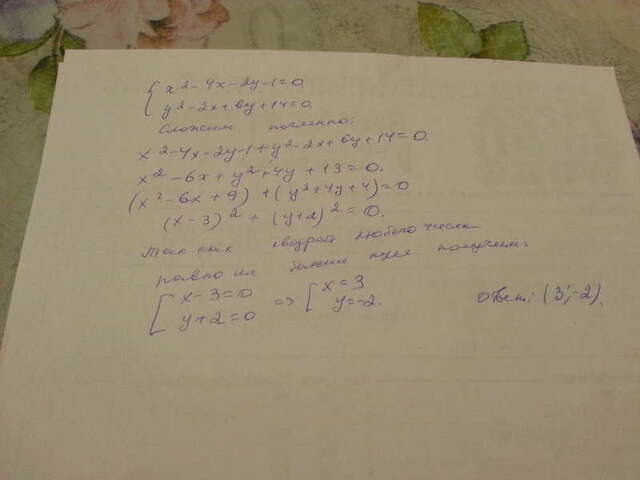 { x²-4x-2y-1=0
y²-2x+6y+14=0.
Сложим почленно:
x²-4x-2y-1+y²-2x+6y+14=0.
x²-6x+y²+4y+13=0.
(x²-6x+9)+(y²+4y+4)=0
(x-3)²+(y+2)²=0.
Так как квадрат любого числа
равно или больше нуля получаем:
[ x-3=0 => [ x=3
y+2=0 y=-2. Ответ: (3;-2).